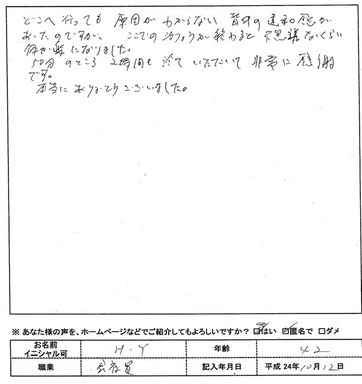 どこへ行っても原因がわからない背中の違和感が
あったのですが、ここでの治りょうが終わると不思議なくらい
体が楽になりました。
50分のところ2時間も診ていただいて非常に感謝
です。
本当にありがとうございました。
※あなた様の声を、ホームページなどでご紹介してもよろしいですか？ ☑はい ☑匿名で □ダメ
お名前 イニシャル可 H・Y 年齢 42
職業 会社員 記入年月日 平成24年10月12日